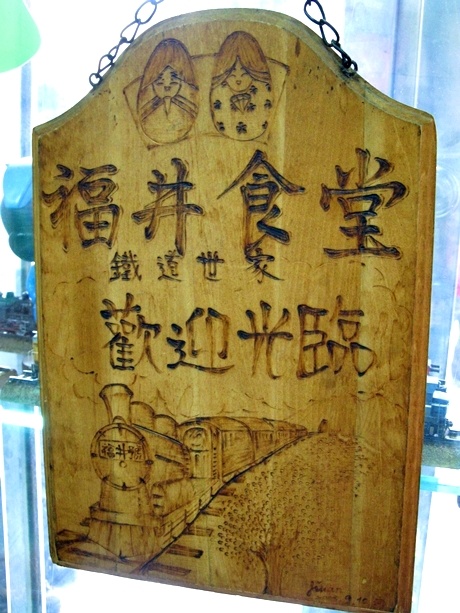 福井食堂
鐵道世家
歡迎光臨
福井號